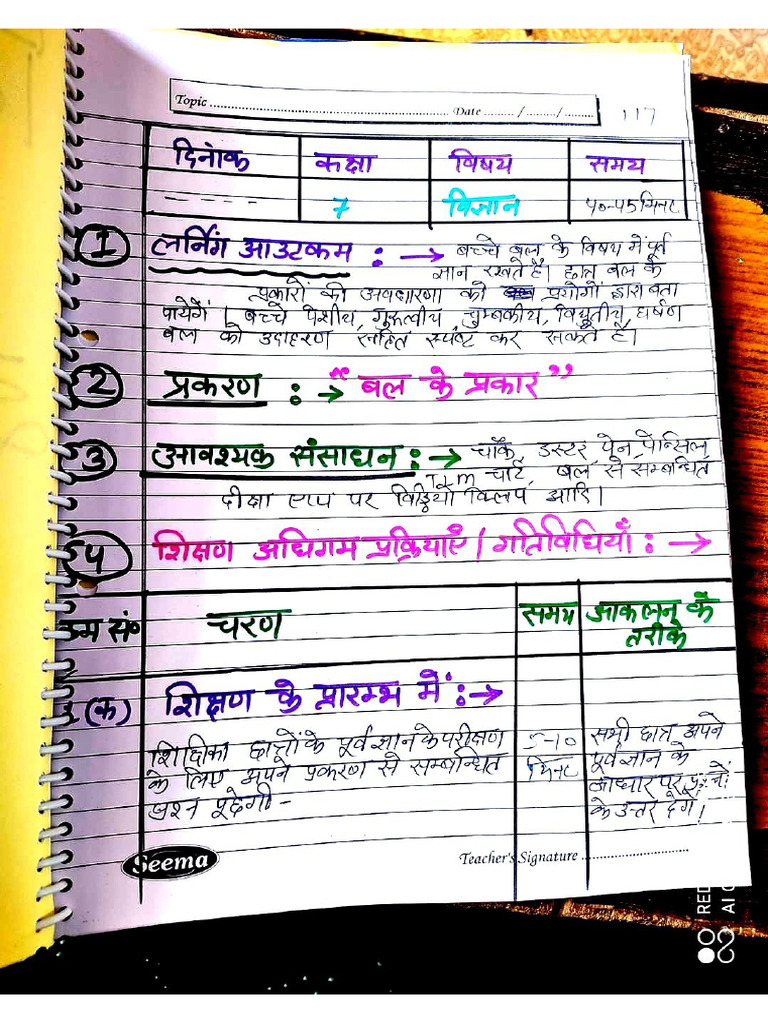 Topic ........................ Date ......../......../........
117
दिनांक कक्षा विषय समय
----- 7 विज्ञान 40-45 मिनट
1 लर्निंग आउटकम : → बच्चे बल के विषय में पूर्व
ज्ञान रखते हैं। छात्र बल के
प्रकारों की अवधारणा को प्रयोगों द्वारा बता
पायेगें। बच्चे पेशीय, गुरुत्वीय, चुम्बकीय, विद्युतीय, घर्षण
बल को उदाहरण सहित स्पष्ट कर सकते हैं।
2 प्रकरण : → "बल के प्रकार"
3 आवश्यक संसाधन : → चॉक, डस्टर पेन, पेन्सिल,
TLM चार्ट, बल से सम्बन्धित
दीक्षा एप पर विडियो क्लिप आदि।
4 शिक्षण अधिगम प्रक्रियाएँ / गतिविधियाँ : →
क्रम सं० चरण समय आकलन के
तरीके
(क) शिक्षण के प्रारम्भ में : →
शिक्षिका छात्रों के पूर्वज्ञान के परीक्षण 5-10 सभी छात्र अपने
के लिए अपने प्रकरण से सम्बन्धित मिनट पूर्वज्ञान के
प्रश्न पूछेगी - आधार पर प्रश्नों
के उत्तर देंगे।
Seema Teacher's Signature ........................
RED
AI